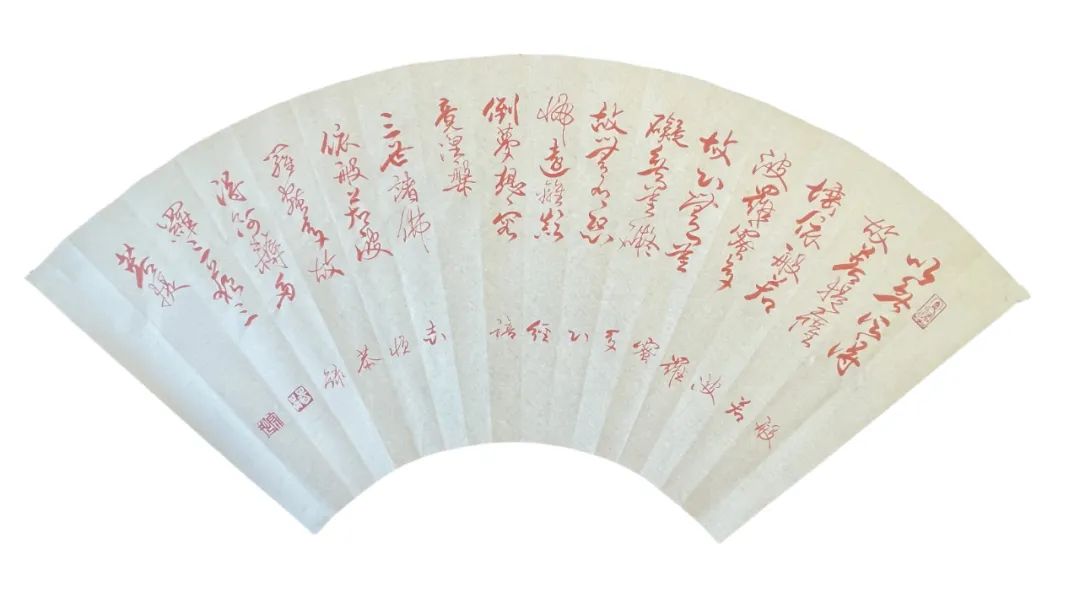 以無所得
故菩提薩
埵依般若
波羅蜜多
故心無罣
礙無罣礙
故無有恐
怖遠離顛
倒夢想究
竟涅槃
三世諸佛
依般若波
羅蜜多故
得阿耨多
羅三藐三
菩提
般若波羅蜜多心經語
志恒恭錄